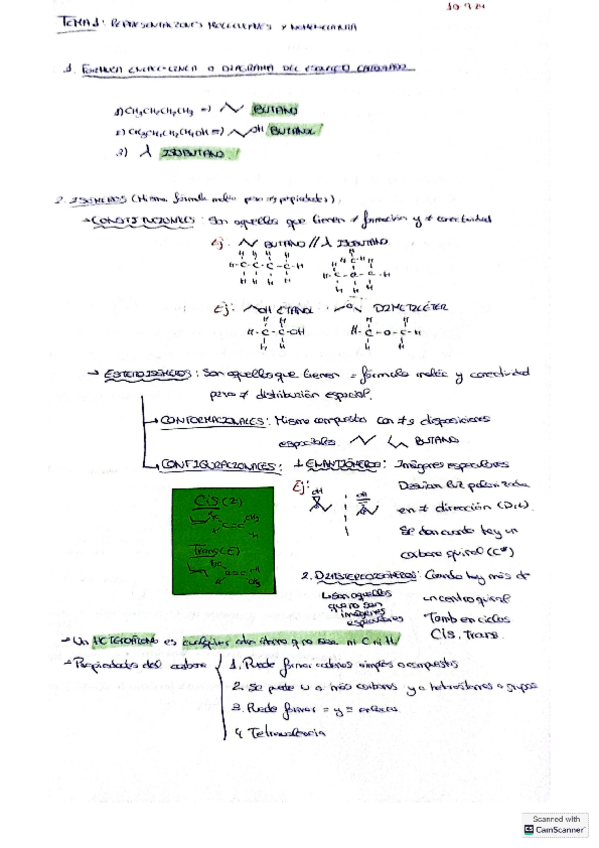 10 9 24
TEMA 1: REPRESENTACIONES MOLECULARES Y NOMENCLATURA
1. FÓRMULA ENLACE-LÍNEA O DIAGRAMA DEL ESQUELETO CARBONADO
1) CH3CH2CH2CH3 => BUTANO
2) CH3CH2CH2CH2OH => OH BUTANOL
3) ISOBUTANO
2. ISÓMEROS (Misma fórmula molec pero ≠s propiedades)
→ CONSTITUCIONALES: Son aquellos que tienen ≠ formación y ≠ conectividad
Ej: BUTANO // ISOBUTANO
H H H H
H-C-C-C-C-H
H H H H
Ej: OH ETANOL O DIMETILÉTER
H H
H-C-C-OH H-C-O-C-H
H H H H
→ ESTEROISÓMEROS: Son aquellos que tienen = fórmula molec y conectividad
pero ≠ distribución espacial.
→ CONFORMACIONALES: Mismo compuesto con ≠s disposiciones
espaciales BUTANO
→ CONFIGURACIONALES: 1. ENANTIÓMERO: Imágenes especulares
Ej: OH OH Desvían luz polarizada
en ≠ dirección (D,L).
Se dan cuando hay un
carbono quiral (C*)
Cis (Z)
C=C CH3
Trans (E)
C=C H
CH3
2. DIASTEREOISÓMEROS: Cuando hay más de
Son aquellos un centro quiral
que no son Tamb en ciclos
imágenes Cis, Trans.
especulares
→ Un HETEROÁTOMO es cualquier otro átomo q no sea ni C ni H
→ Propiedades del carbono 1. Puede formar cadenas simples o compuestas
2. Se puede u a más carbonos y a heteroátomos o grupos
3. Puede formar = y ≡ enlaces
4. Tetravalencia
Scanned with
CamScanner